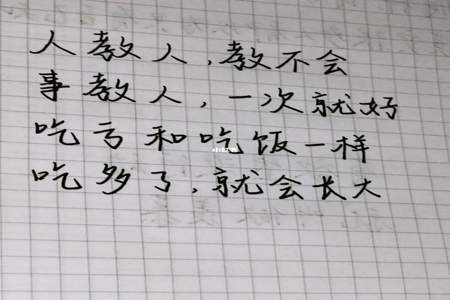 人教人，教不会
事教人，一次就好
吃亏和吃饭一样
吃多了，就会长大